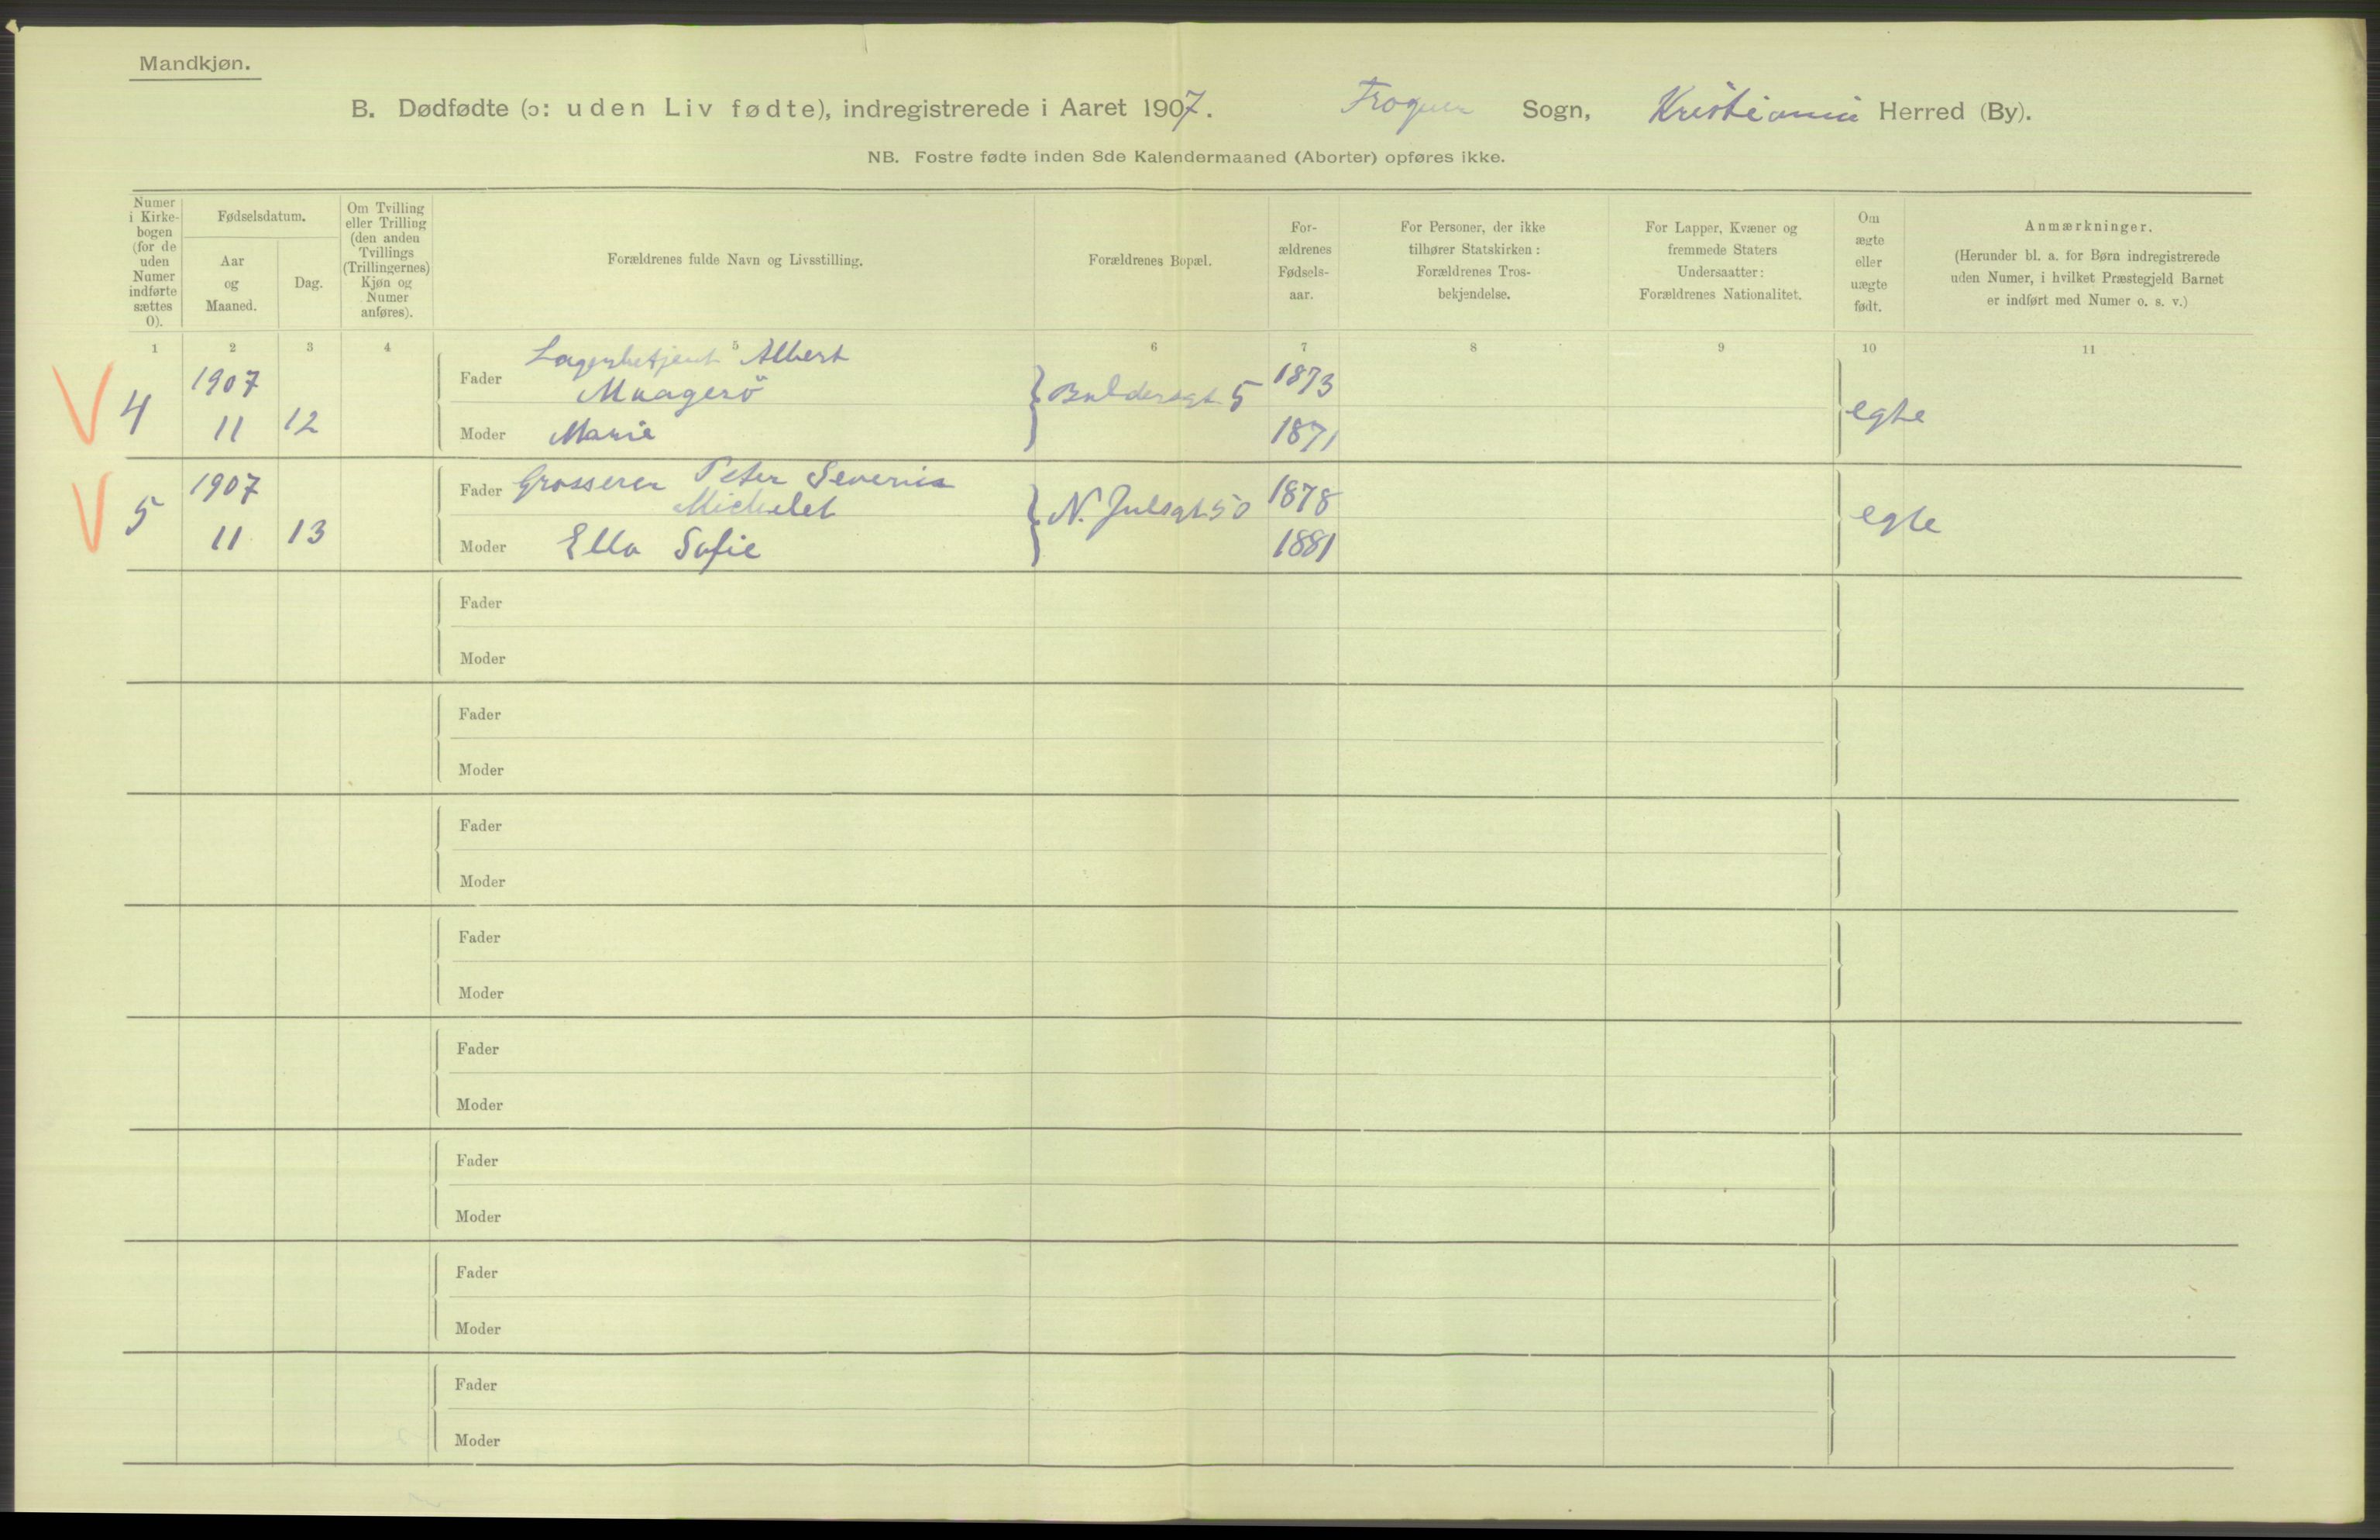 Mandkjøn.
B. Dødfødte (ɔ: uden Liv fødte), indregistrerede i Aaret 1907. Frogner Sogn, Kristiania Herred (By).
NB. Fostre fødte inden 8de Kalendermaaned (Aborter) opføres ikke.
Numer i Kirkebogen (for de uden Numer indførte sættes 0).
Fødselsdatum.
Aar og Maaned.
Dag.
Om Tvilling eller Trilling (den anden Tvillings (Trillingernes) Kjøn og Numer anføres).
Forældrenes fulde Navn og Livsstilling.
Forældrenes Bopæl.
Forældrenes Fødselsaar.
For Personer, der ikke tilhører Statskirken: Forældrenes Trosbekjendelse.
For Lapper, Kvæner og fremmede Staters Undersaatter: Forældrenes Nationalitet.
Om ægte eller uægte født.
Anmærkninger.
(Herunder bl. a. for Børn indregistrerede uden Numer, i hvilket Præstegjeld Barnet er indført med Numer o. s. v.)
1 2 3 4 5 6 7 8 9 10 11
Lagerbetjent Albert
4 1907 Fader Maagerö 5 1873
11 12 Moder Marie 1871 egte
5 1907 Fader Grosserer Peter Severin
Michelet N. Julsgt 50 1878
11 13 Moder Ella Sofie 1881 egte
Fader
Moder
Fader
Moder
Fader
Moder
Fader
Moder
Fader
Moder
Fader
Moder
Fader
Moder
Fader
Moder